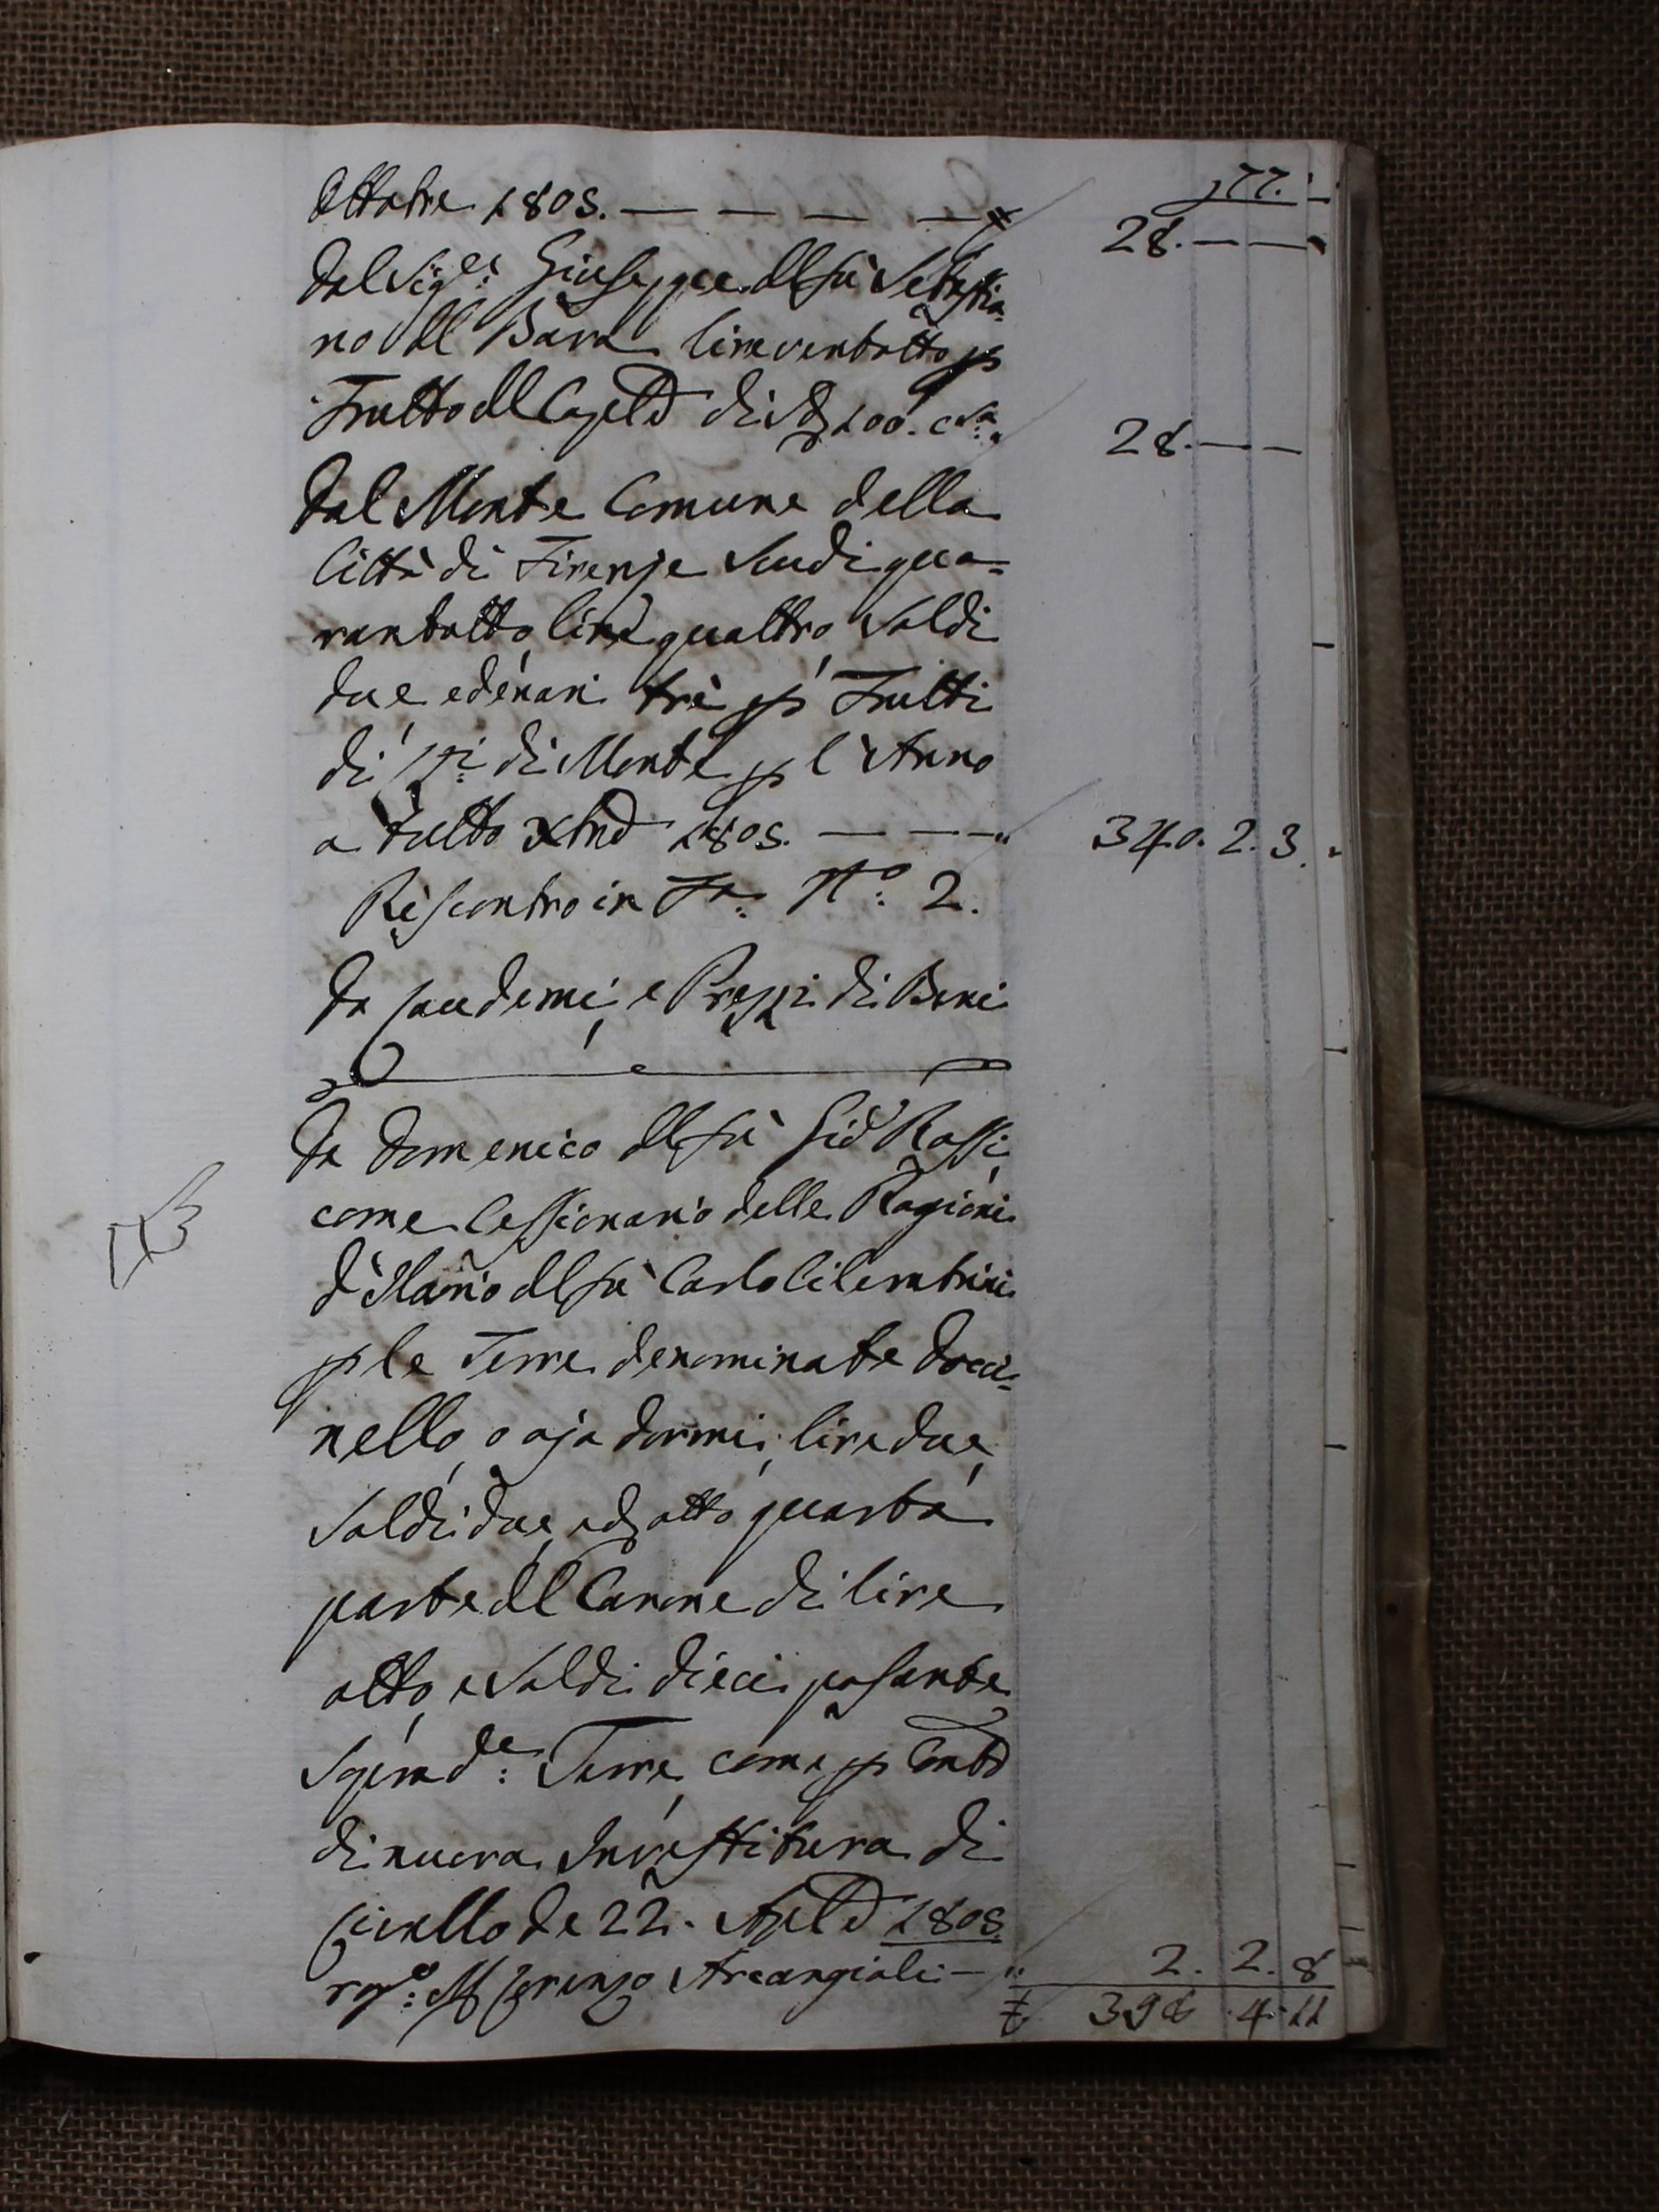 177.
Ottobre 1805. — — — — 28. — —
Dal Sig.re Giuseppe del fù Sebastia-
no del Bava lire ventotto p
Frutto del Capitle di Sdi 100. c.sa 28. — —
Dal Monte Comune della
Città di Firenze Scudi qua=
rantotto, lire quattro, Soldi
due, e denari tre p Frutti
di ppi: di Monte p l'Anno
a tutto Xbre 1805. — — — " 340. 2. 3.
Riscontro in Fa: No: 2.
Da Laudemi, e Prezzi di Beni
Da Domenico del fù Gio Rossi,
come Cessionario delle Ragioni
d'Ilario del fù Carlo
p le Terre denominate Docci=
nello, o aja Dormi, lire due,
Soldi due, e d otto quarta
parte del Canone di lire
otto, e Soldi dieci posante
Sopra d.e: Terre, come p Contto
di nuova Investitura di
Livello de 22. Aple 1805.
rog.o: M Lorenzo Arcangioli — " 2. 2. 8
£ 398. 4. 11